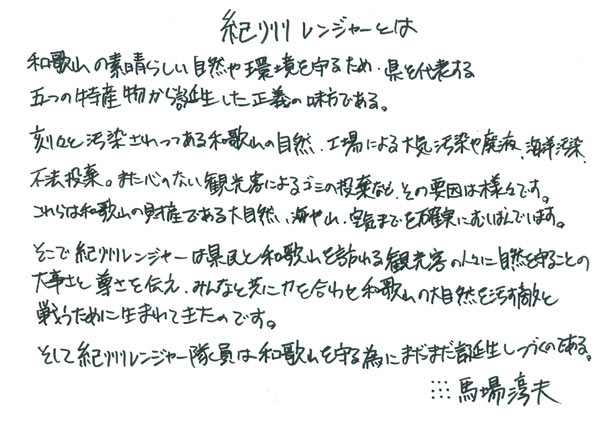 紀州レンジャーとは
和歌山の素晴らしい自然や環境を守るため、県を代表する
五つの特産物から誕生した正義の味方である。
刻々と汚染されつつある和歌山の自然、工場による大気汚染や廃液、海洋汚染、
不法投棄。また心のない観光客によるゴミの投棄など、その要因は様々です。
これらは和歌山の財産である大自然、海や山、空気までを確実にむしばんでいます。
そこで紀州レンジャーは県民と和歌山を訪れる観光客の人々に自然を守ることの
大事さと尊さを伝え、みんなと共に力を合わせ和歌山の大自然を汚す敵と
戦うために生まれて来たのです。
そして紀州レンジャー隊員は和歌山を守る為にまだまだ誕生しつづくのである。
馬場淳夫